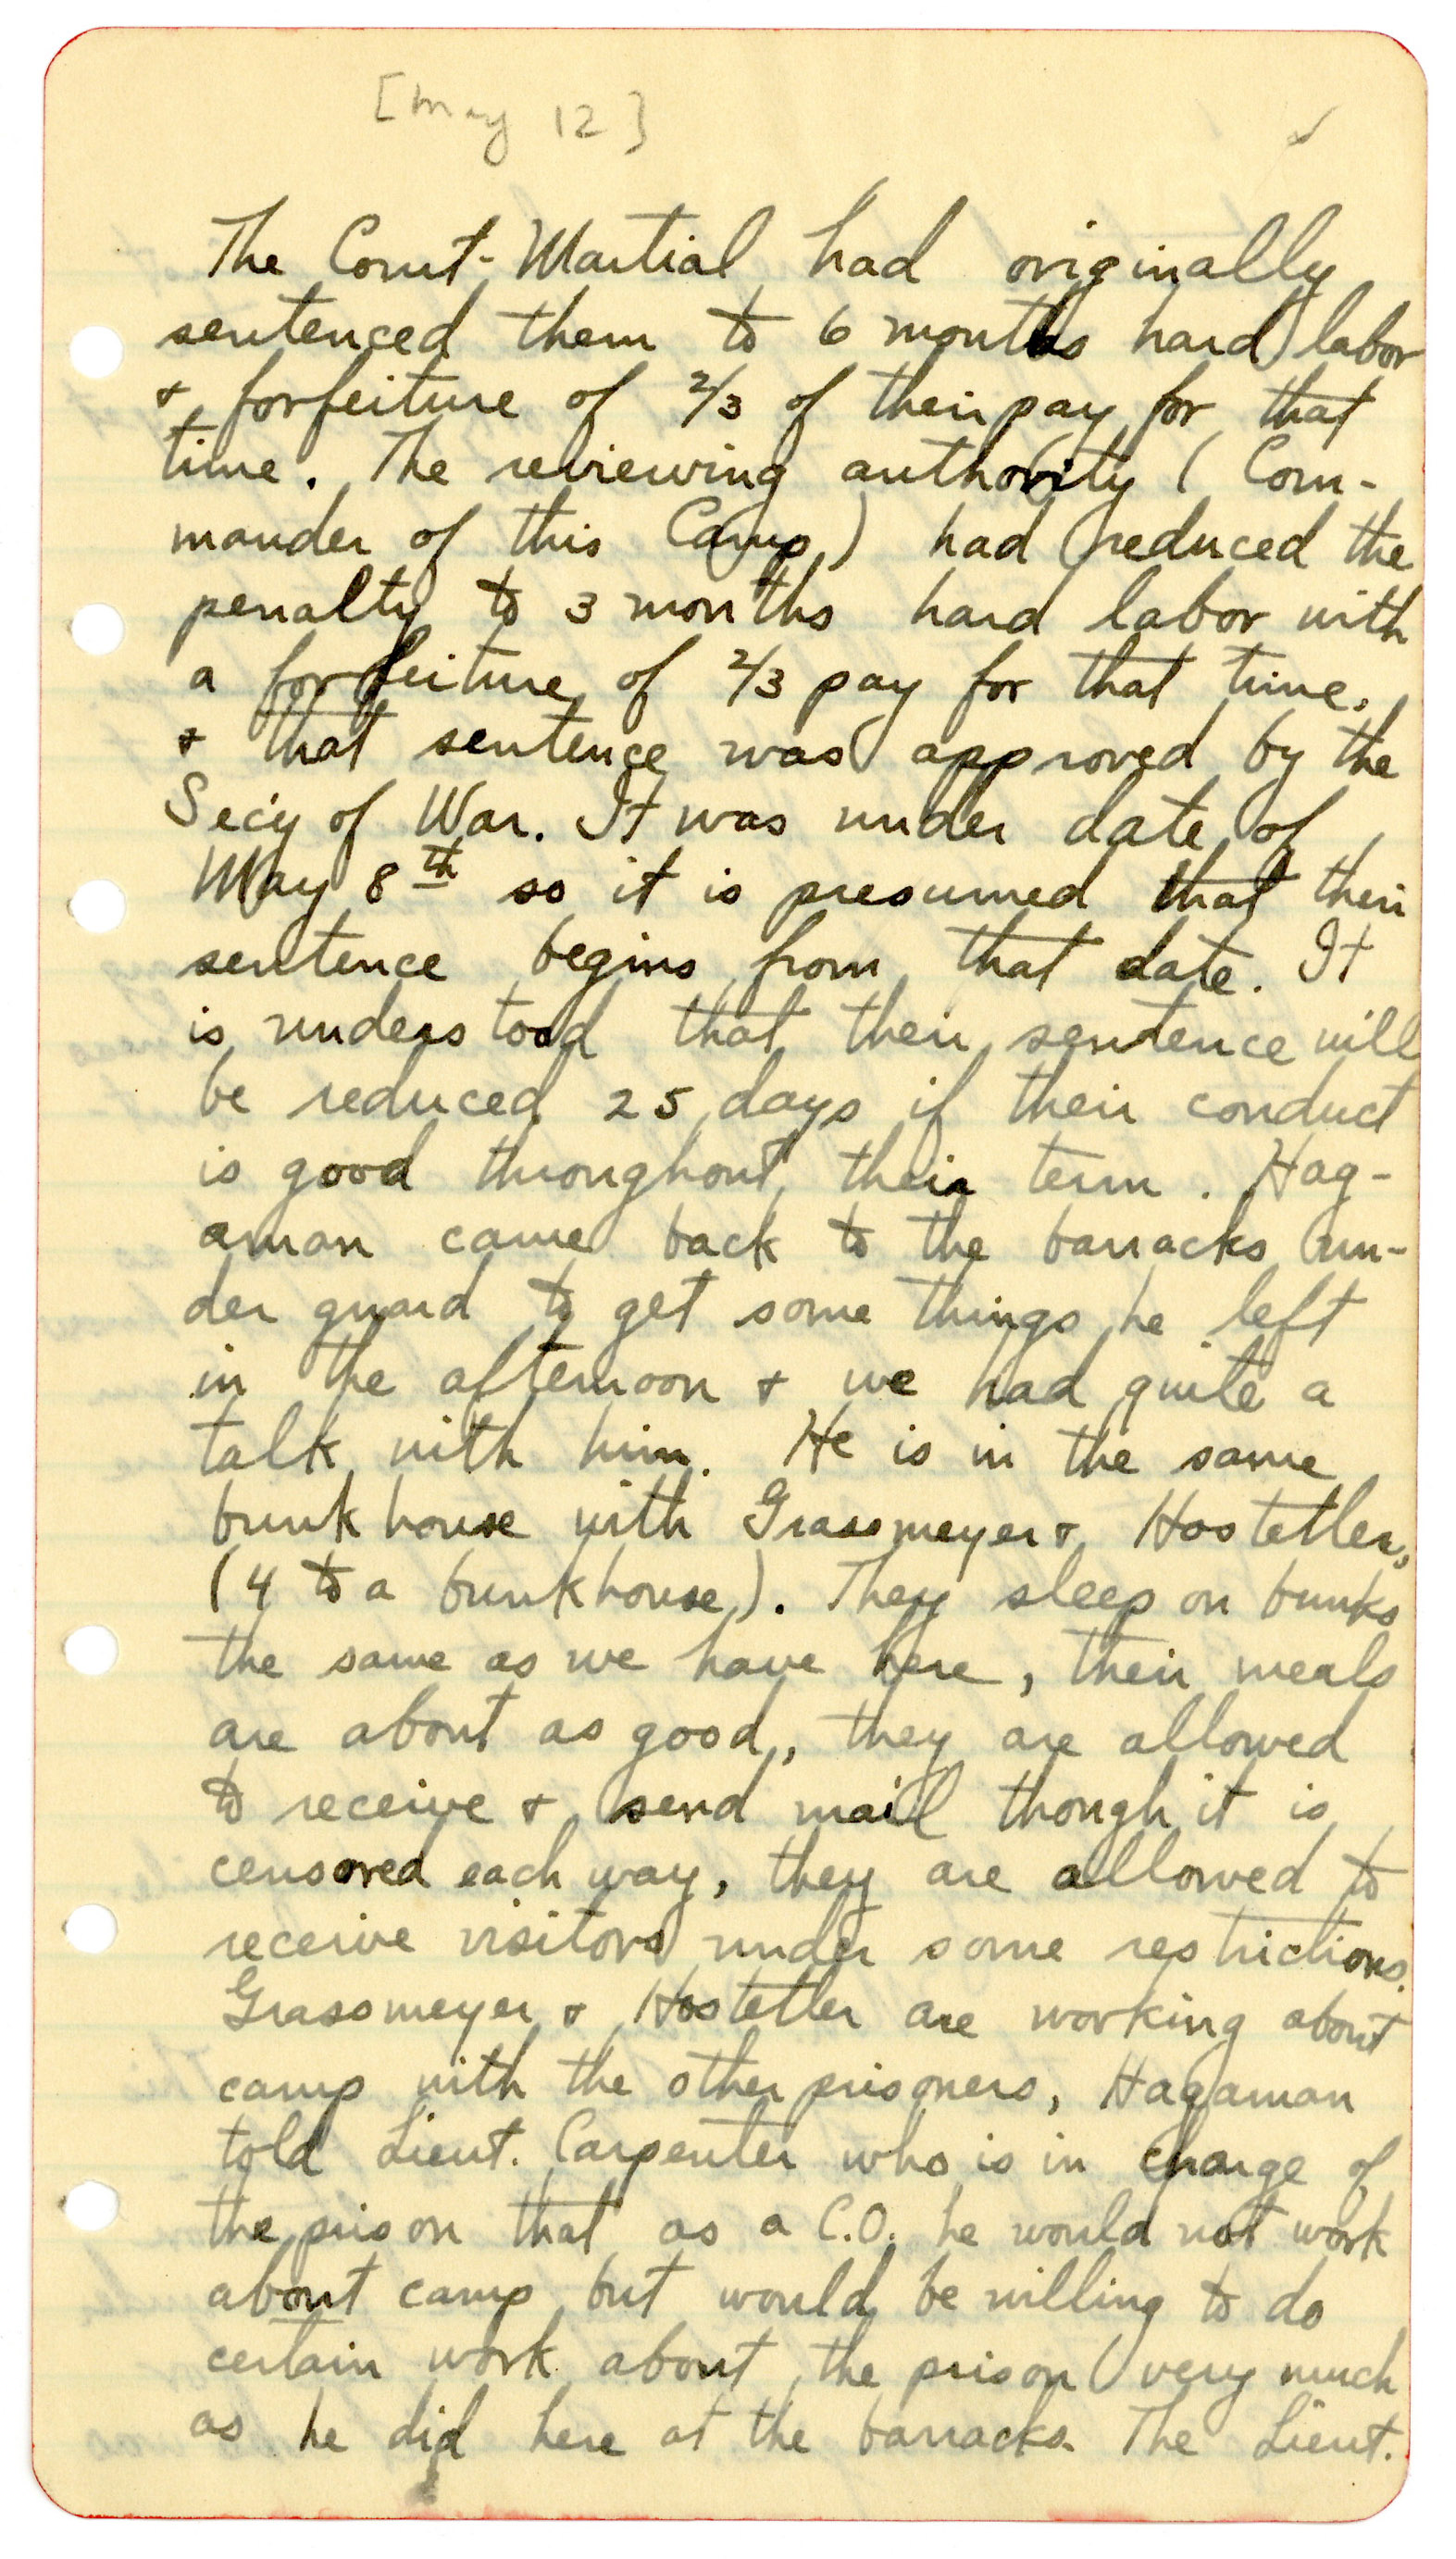 [May 12]
The Court-Martial had originally
sentenced them to 6 months hard labor
& forfeiture of 2/3 of their pay for that
time. The reviewing authority (Com-
mander of this Camp) had reduced the
penalty to 3 months hard labor with
a forfeiture of 2/3 pay for that time,
& that sentence was approved by the
Sec'y of War. It was under date of
May 8th so it is presumed that their
sentence begins from that date. It
is understood that their sentence will
be reduced 25 days if their conduct
is good throughout their term. Hag-
aman came back to the barracks un-
der guard to get some things he left
in the afternoon & we had quite a
talk with him. He is in the same
bunkhouse with Grassmeyer & Hostetler,
(4 to a bunkhouse). They sleep on bunks
the same as we have here, their meals
are about as good, they are allowed
to receive & send mail though it is
censored each way, they are allowed to
receive visitors under some restrictions.
Grassmeyer & Hostetler are working about
camp with the other prisoners, Hagaman
told Lieut. Carpenter who is in charge of
the prison that as a C.O. he would not work
about camp but would be willing to do
certain work about the prison very much
as he did here at the barracks. The Lieut.